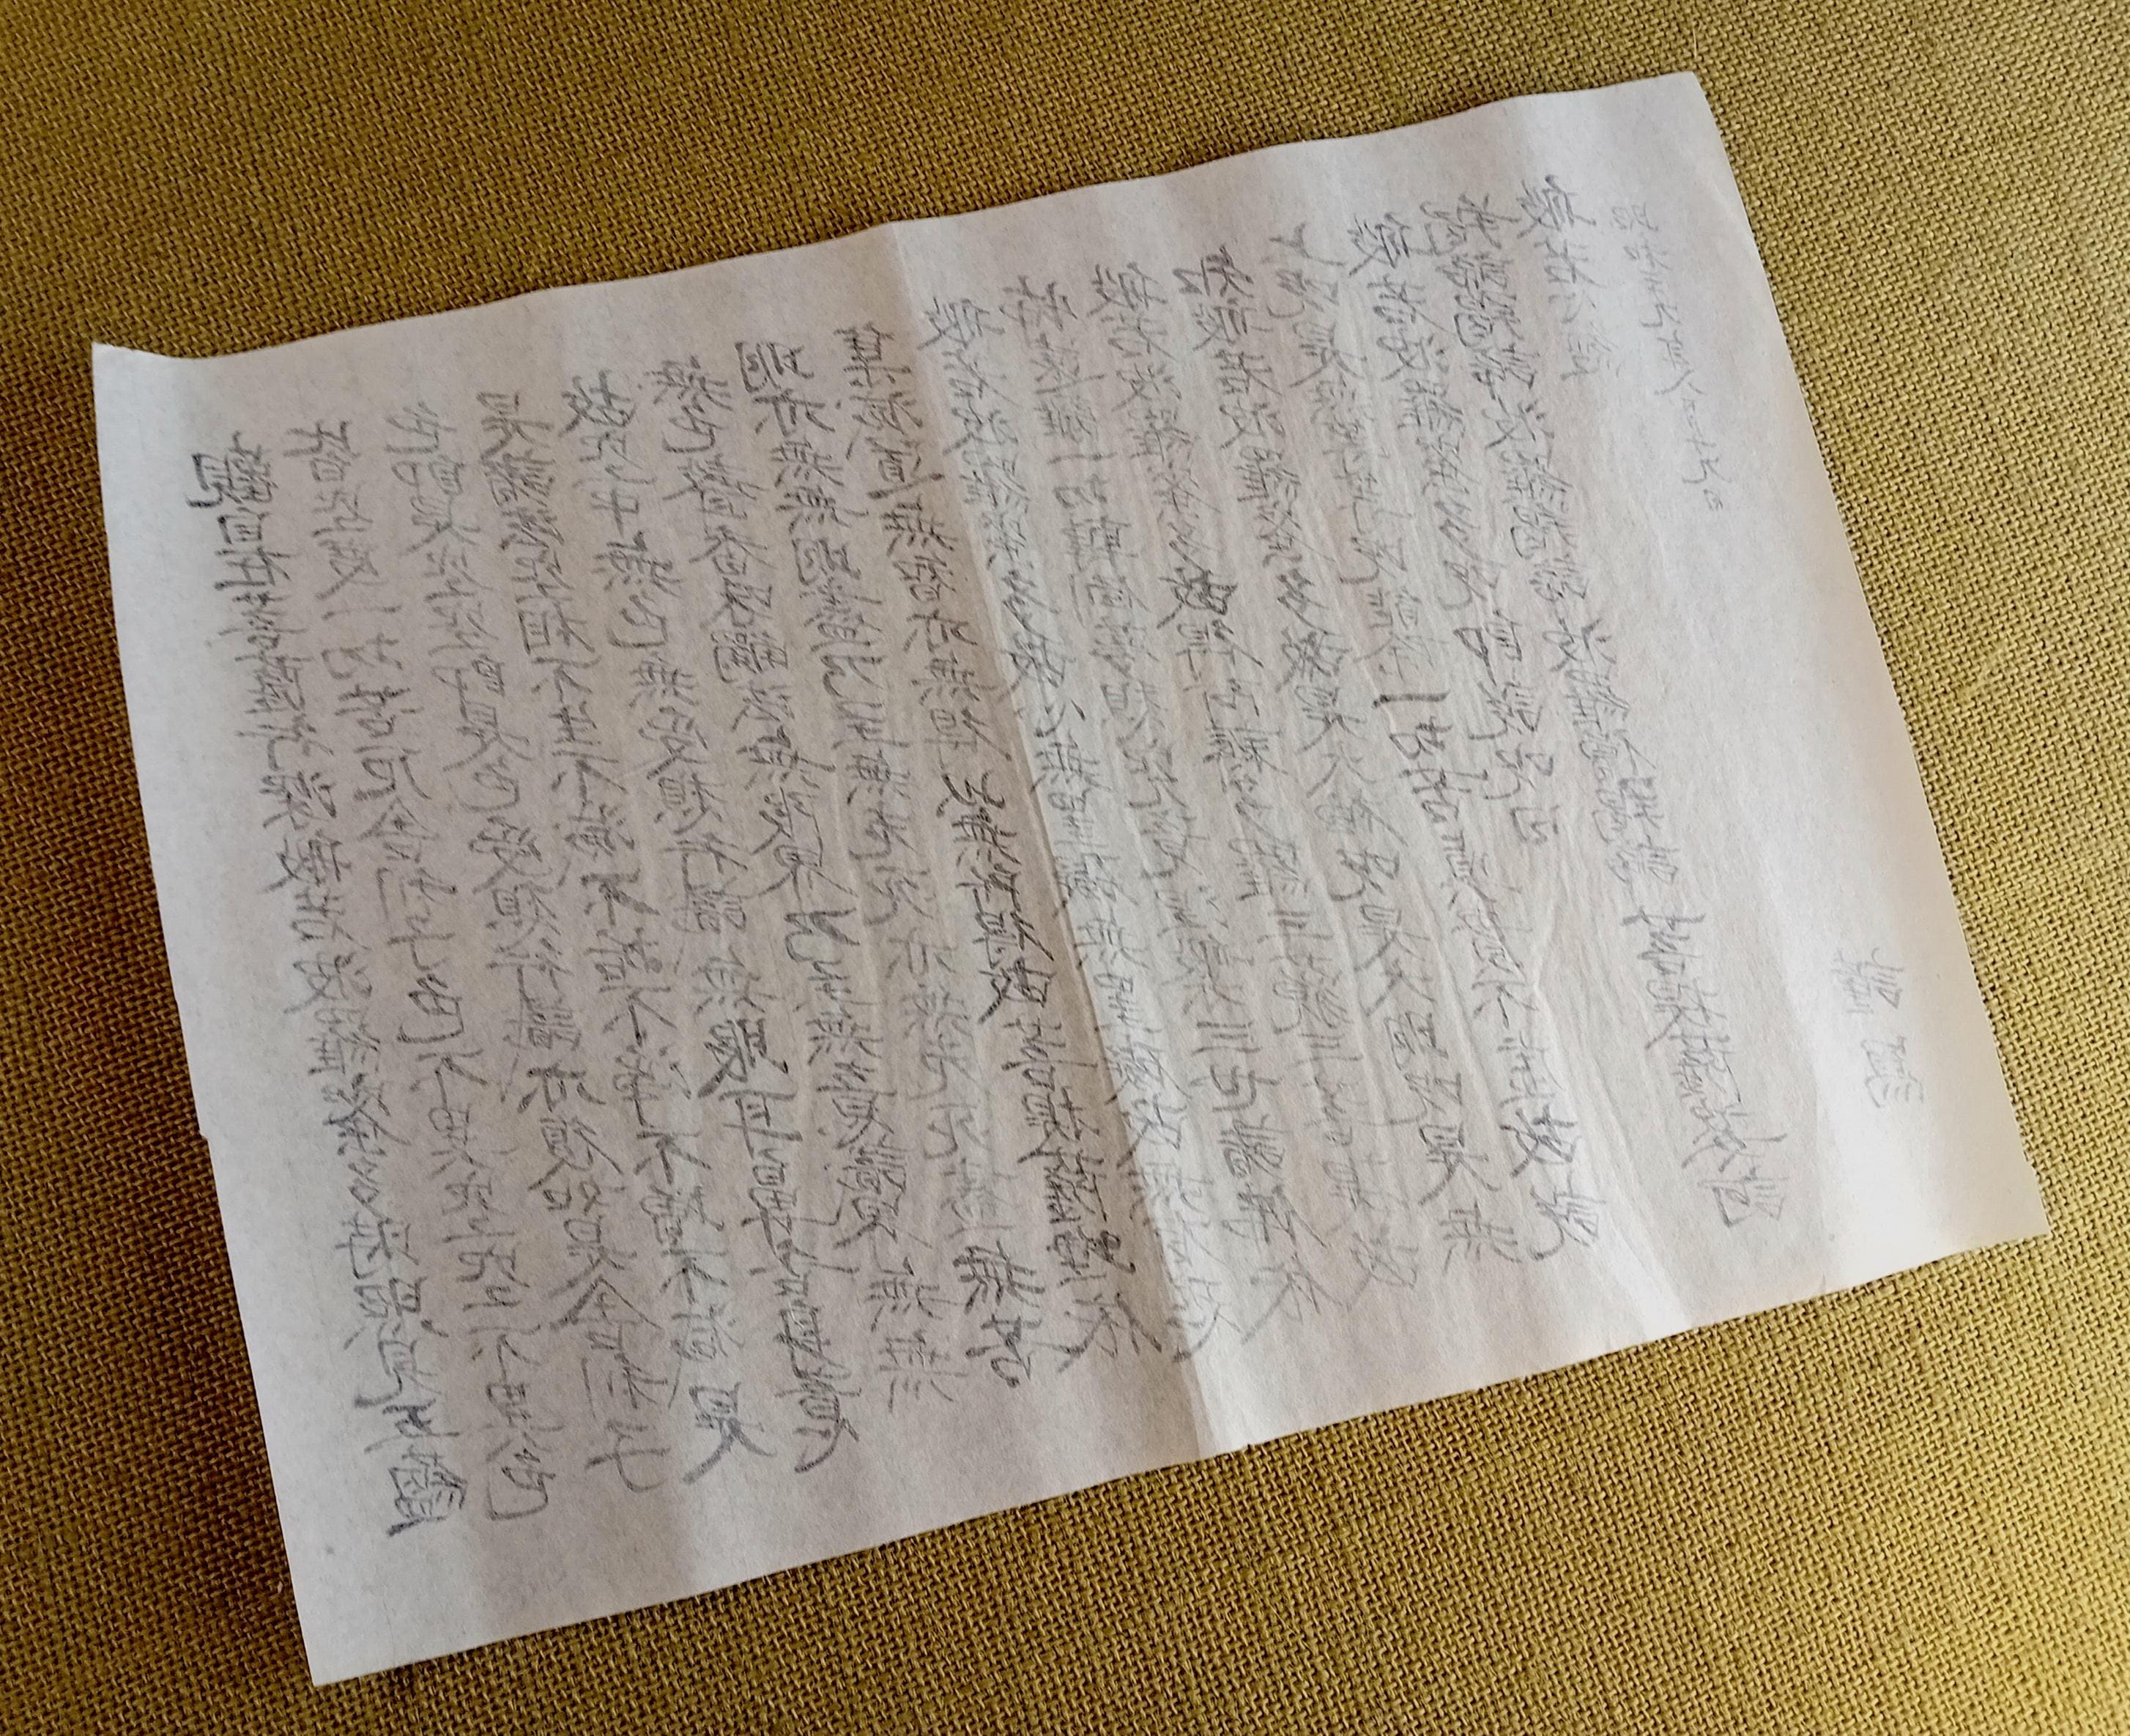 觀自在菩薩行深般若波羅蜜多時照見五蘊
皆空度一切苦厄舍利子色不異空空不異色
色即是空空即是色受想行識亦復如是舍利子
是諸法空相不生不滅不垢不淨不增不減是
故空中無色無受想行識無眼耳鼻舌身意
無色聲香味觸法無眼界乃至無意識界無無
明亦無無明盡乃至無老死亦無老死盡無苦
集滅道無智亦無得以無所得故菩提薩埵依
般若波羅蜜多故心無罣礙無罣礙故無有恐
怖遠離一切顛倒夢想究竟涅槃三世諸佛依
般若波羅蜜多故得阿耨多羅三藐三菩提故
知般若波羅蜜多是大神呪是大明呪是無
上呪是無等等呪能除一切苦真實不虛故說
般若波羅蜜多呪即說呪曰
羯諦羯諦波羅羯諦波羅僧羯諦菩提薩婆訶
般若心經
昭和